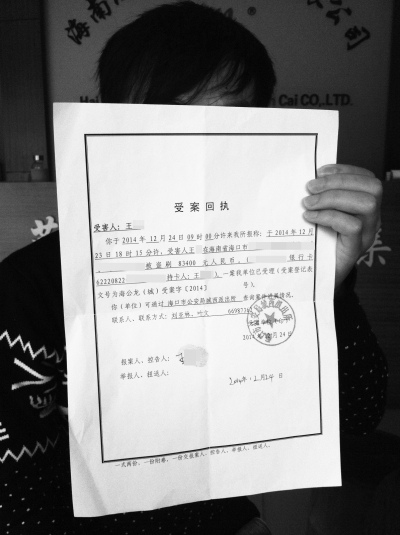 海南
公司
Cai CO.,LTD.
受案回执
受害人：王
你于 2014 年 12 月 24 日 09 时 00 分许来我所报称：于 2014 年 12 月
23 日 18 时 15 分许，受害人王 在海南省海口市
被盗刷 83400 元人民币，( 银行卡
62220822 持卡人：王 ) 一案我单位已受理（受案登记表
文号为海公龙（城）受案字〔2014〕
你（单位）可通过 海口市公安局城西派出所 查询案件进展情况。
联系人、联系方式： 6698736
24 日
报案人、控告人：
举报人、扭送人：
2014年12月24日
一式两份，一份附卷，一份交报案人、控告人、举报人、扭送人。